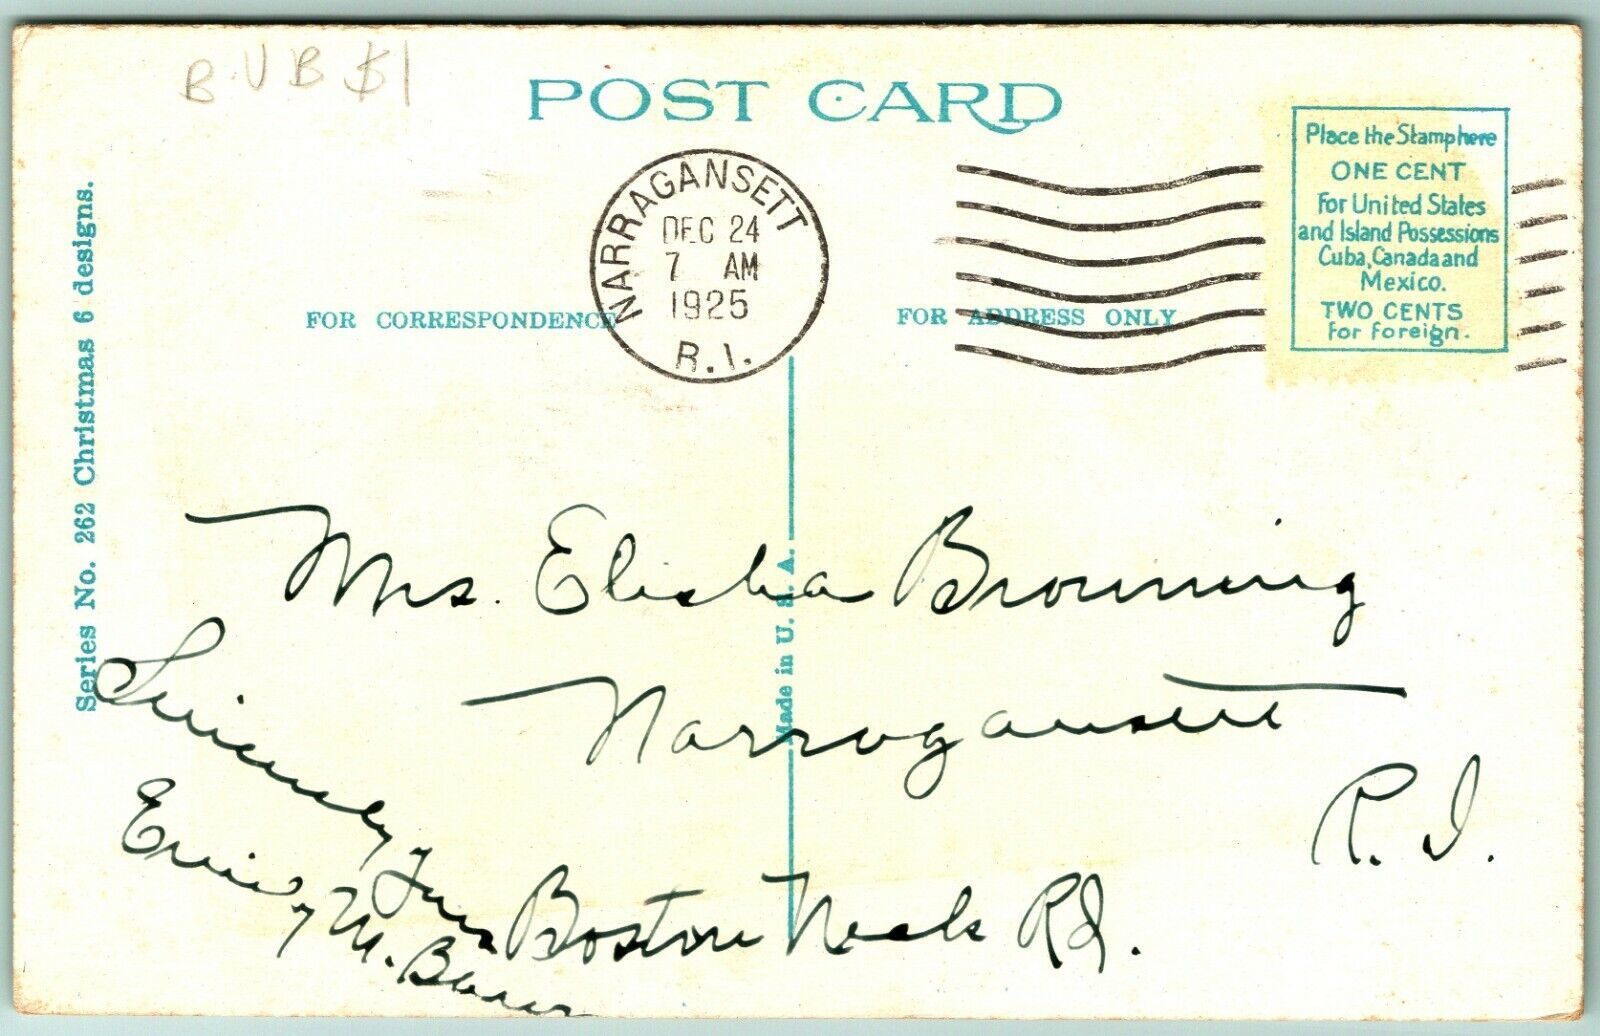 B U B $1
POST CARD
NARRAGANSETT
DEC 24
7 AM
1925
R.I.
Place the Stamp here
ONE CENT
For United States
and Island Possessions
Cuba, Canada and
Mexico.
TWO CENTS
for foreign.
FOR CORRESPONDENCE
FOR ADDRESS ONLY
Series No. 262 Christmas 6 designs.
Made in U. S. A.
Mrs. Elisha Browning
Narragansett
R. I.
Boston Neck Rd.
Sincerely Yours
M.